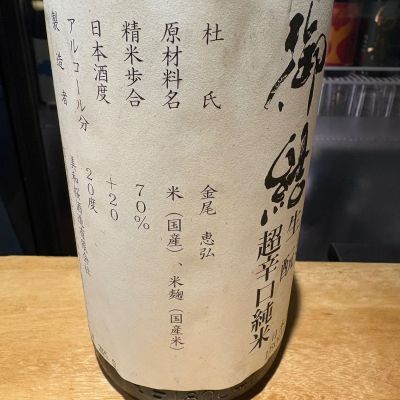 超辛口純米
杜氏 金尾 恵弘
原材料名 米(国産)、米麹(国産米)
精米歩合 70%
日本酒度 +20
アルコール分 20度
製造者 美和桜酒造有限会社